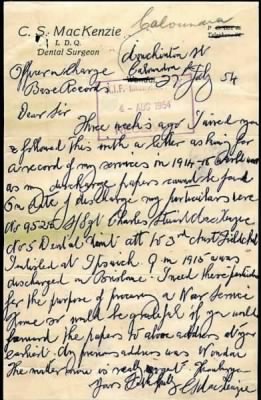 Caloundra
C. S. MacKenzie
L. D. Q.
Dental Surgeon
St
27 July 54
Officer in Charge
Base Records
4 - AUG 1954
Dear Sir
Three weeks ago I wired you
& followed this with a letter asking for
a record of my services in 1914 to
as my discharge papers cannot be found
on date of discharge my particulars were
No 9525 S/Sgt Charles Stuart MacKenzie
No 5 Dental Unit att to 3rd Aust Field
Enlisted at Ipswich Q in 1915 was
discharged in Brisbane. I need these particulars
for the purpose of procuring a War Service
Home so would be grateful if you will
forward the papers to above address at your
earliest. My previous address was Wondai
The matter is really urgent. Thanking you
Yours Faithfully
C S MacKenzie